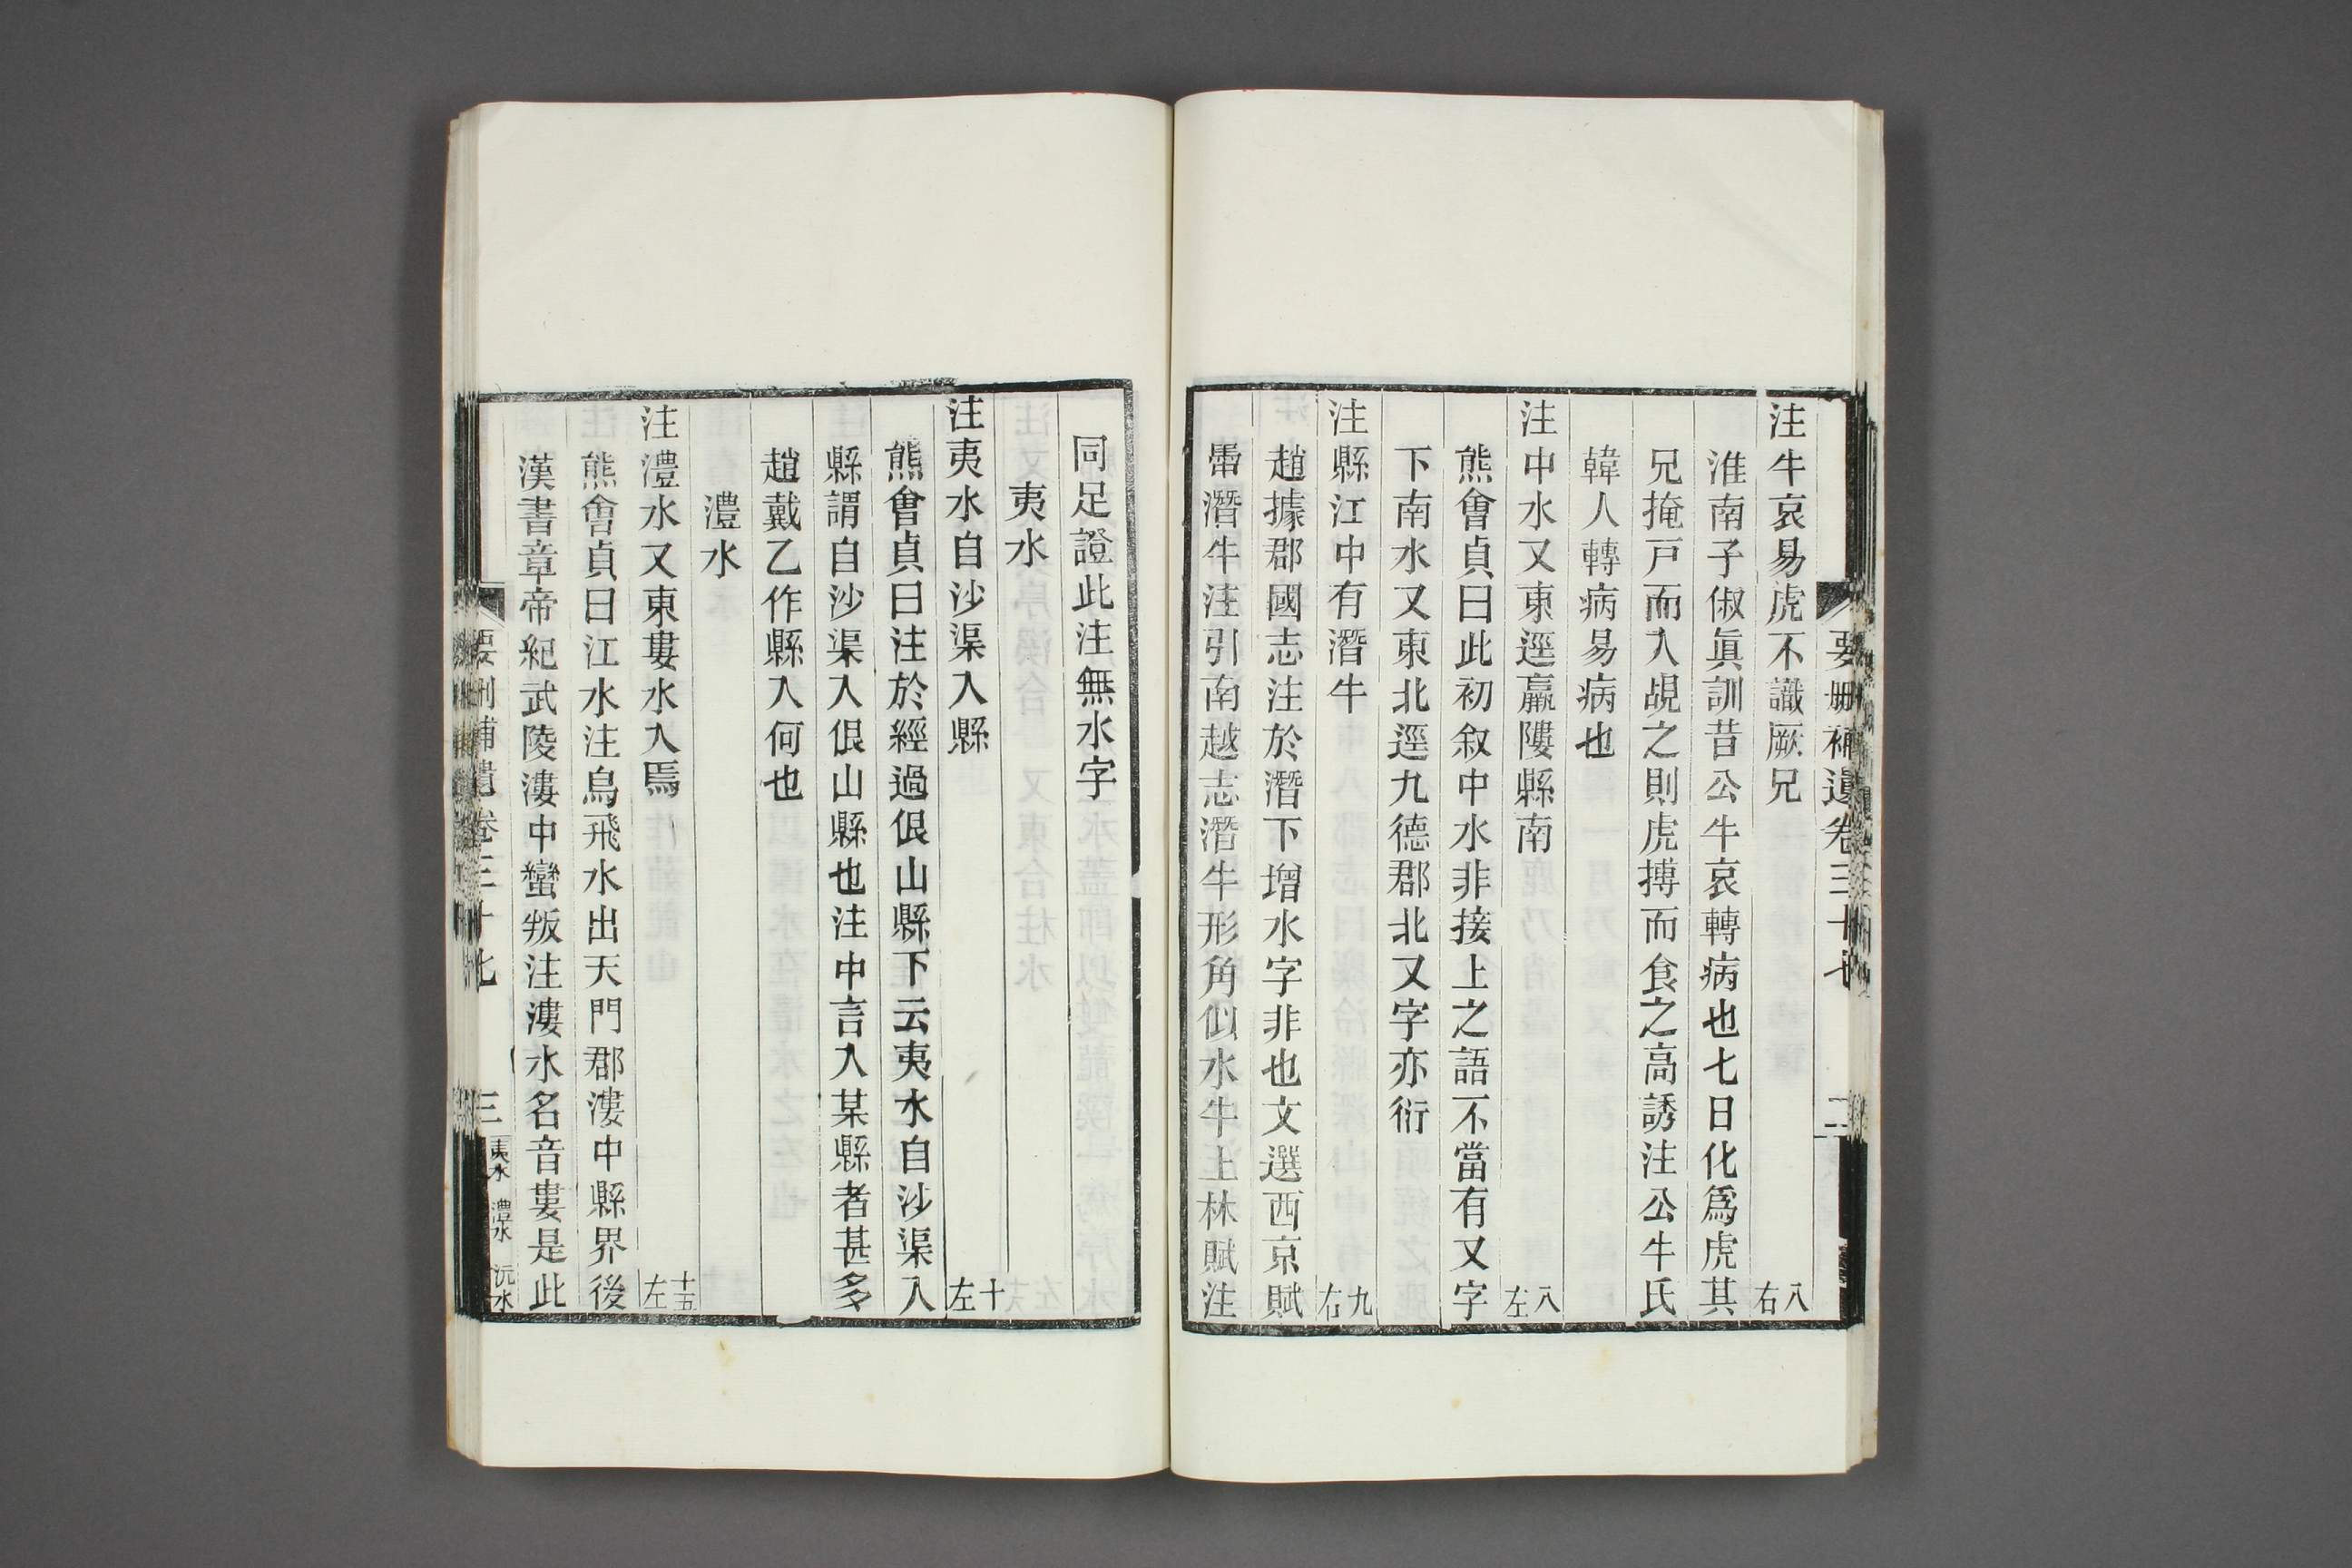 要刪補遺卷三十七
二
注牛哀易虎不識厥兄 八右
淮南子俶眞訓昔公牛哀轉病也七日化爲虎其
兄掩戸而入覘之則虎搏而食之高誘注公牛氏
韓人轉病易病也
注中水又東逕羸𨻻縣南 八左
熊會貞曰此初叙中水非接上之語不當有又字
下南水又東北逕九德郡北又字亦衍
注縣江中有潛牛 九右
趙據郡國志注於潛下增水字非也文選西京賦
潛牛注引南越志潛牛形角似水牛上林賦注
同足證此注無水字
夷水
注夷水自沙渠入縣 十左
熊會貞曰注於經過佷山縣下云夷水自沙渠入
縣謂自沙渠入佷山縣也注中言入某縣者甚多
趙戴乙作縣入何也
澧水
注澧水又東婁水入焉 十五左
熊會貞曰江水注烏飛水出天門郡漊中縣界後
漢書章帝紀武陵漊中蠻叛注漊水名音婁是此
要刪補遺卷三十七
三
夷水 澧水 沅水